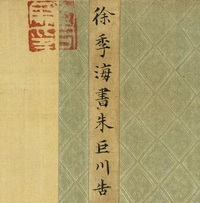 徐季海書朱巨川告